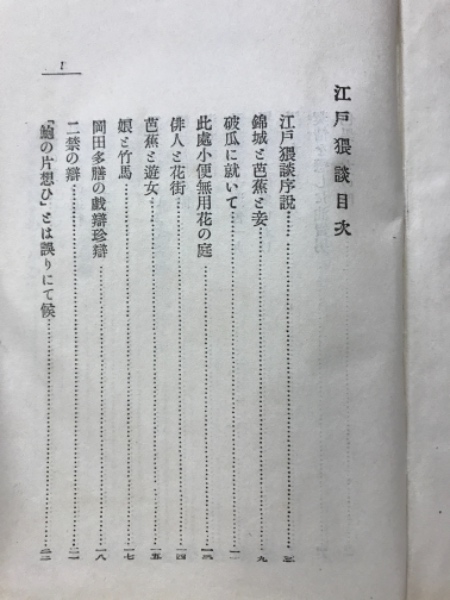 江戸猥談目次
江戸猥談序説……………………
錦城と芭蕉と妾……………………九
破瓜に就いて……………………一一
此處小便無用花の庭……………………一三
俳人と花街……………………一四
芭蕉と遊女……………………一五
娘と竹馬……………………一七
岡田多膳の戯辯珍辯……………………一八
二禁の辯……………………二一
「鮑の片想ひ」とは誤りにて候……………………二二
1